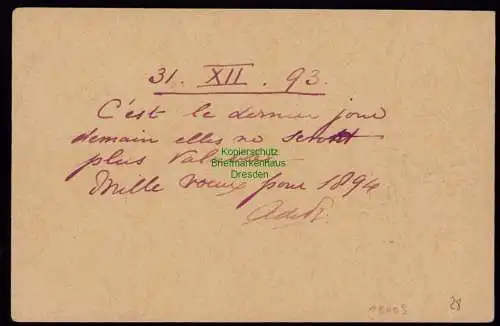 31. XII. 93.
C'est le dernier jour
demain elles ne seront
plus valables
Mille voeux pour 1894
Kopierschutz
Briefmarkenhaus
Dresden
28